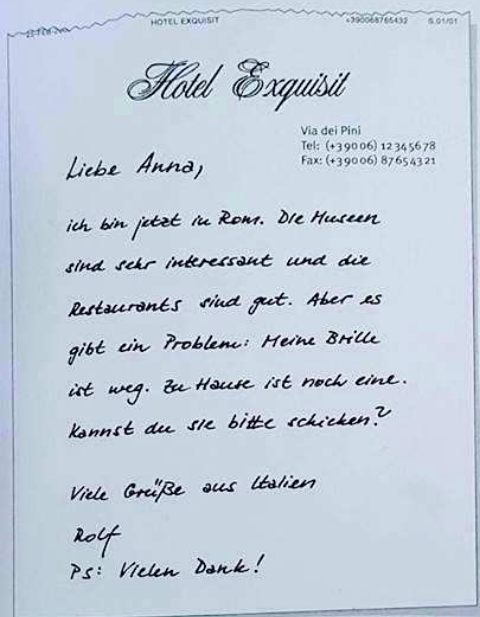 HOTEL EXQUISIT +390068765432 S.01/01
Hotel Exquisit
Via dei Pini
Tel: (+39006) 12345678
Fax: (+39006) 87654321
Liebe Anna,
ich bin jetzt in Rom. Die Museen
sind sehr interessant und die
Restaurants sind gut. Aber es
gibt ein Problem: Meine Brille
ist weg. Zu Hause ist noch eine.
Kannst du sie bitte schicken?
Viele Grüße aus Italien
Rolf
PS: Vielen Dank!